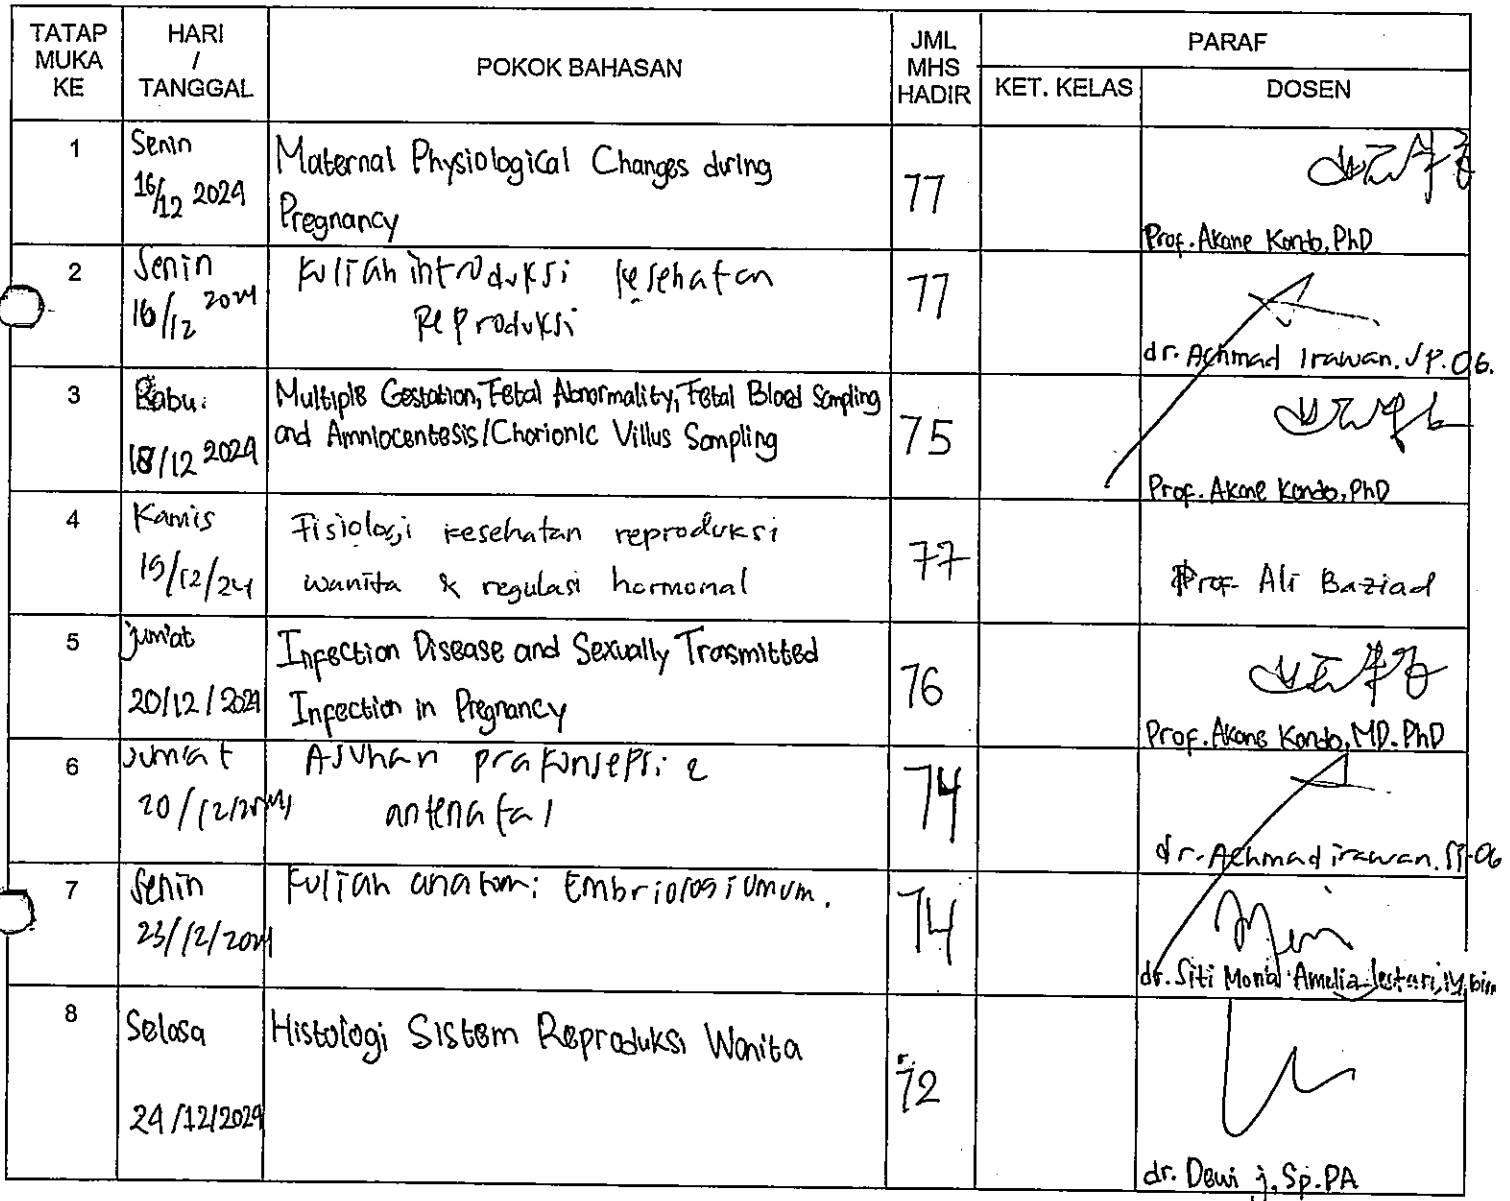 TATAP MUKA KE
HARI / TANGGAL
POKOK BAHASAN
JML MHS HADIR
PARAF
KET. KELAS
DOSEN
1
Senin
16/12 2024
Maternal Physiological Changes during
Pregnancy
77
Prof. Akane Kondo, PhD
2
Senin
16/12 2024
Kuliah introduksi kesehatan
Reproduksi
77
dr. Achmad Irawan. SP.OG.
3
Rabu
18/12 2024
Multiple Gestation, Fetal Abnormality, Fetal Blood Sampling
and Amniocentesis/Chorionic Villus Sampling
75
Prof. Akane Kondo, PhD
4
Kamis
19/12/24
Fisiologi kesehatan reproduksi
wanita & regulasi hormonal
77
Prof Ali Baziad
5
Jum'at
20/12/2024
Infection Disease and Sexually Transmitted
Infection in Pregnancy
76
Prof. Akane Kondo, MD. PhD
6
Jum'at
20/12/2024
Asuhan prakonsepsi &
antenatal
74
dr. Achmad irawan. SP-OG
7
Senin
23/12/2024
Kuliah anatomi Embriologi Umum.
74
dr. Siti Mona Amelia Lestari, M.bim
8
Selasa
24/12/2024
Histologi Sistem Reproduksi Wanita
72
dr. Dewi j, Sp.PA